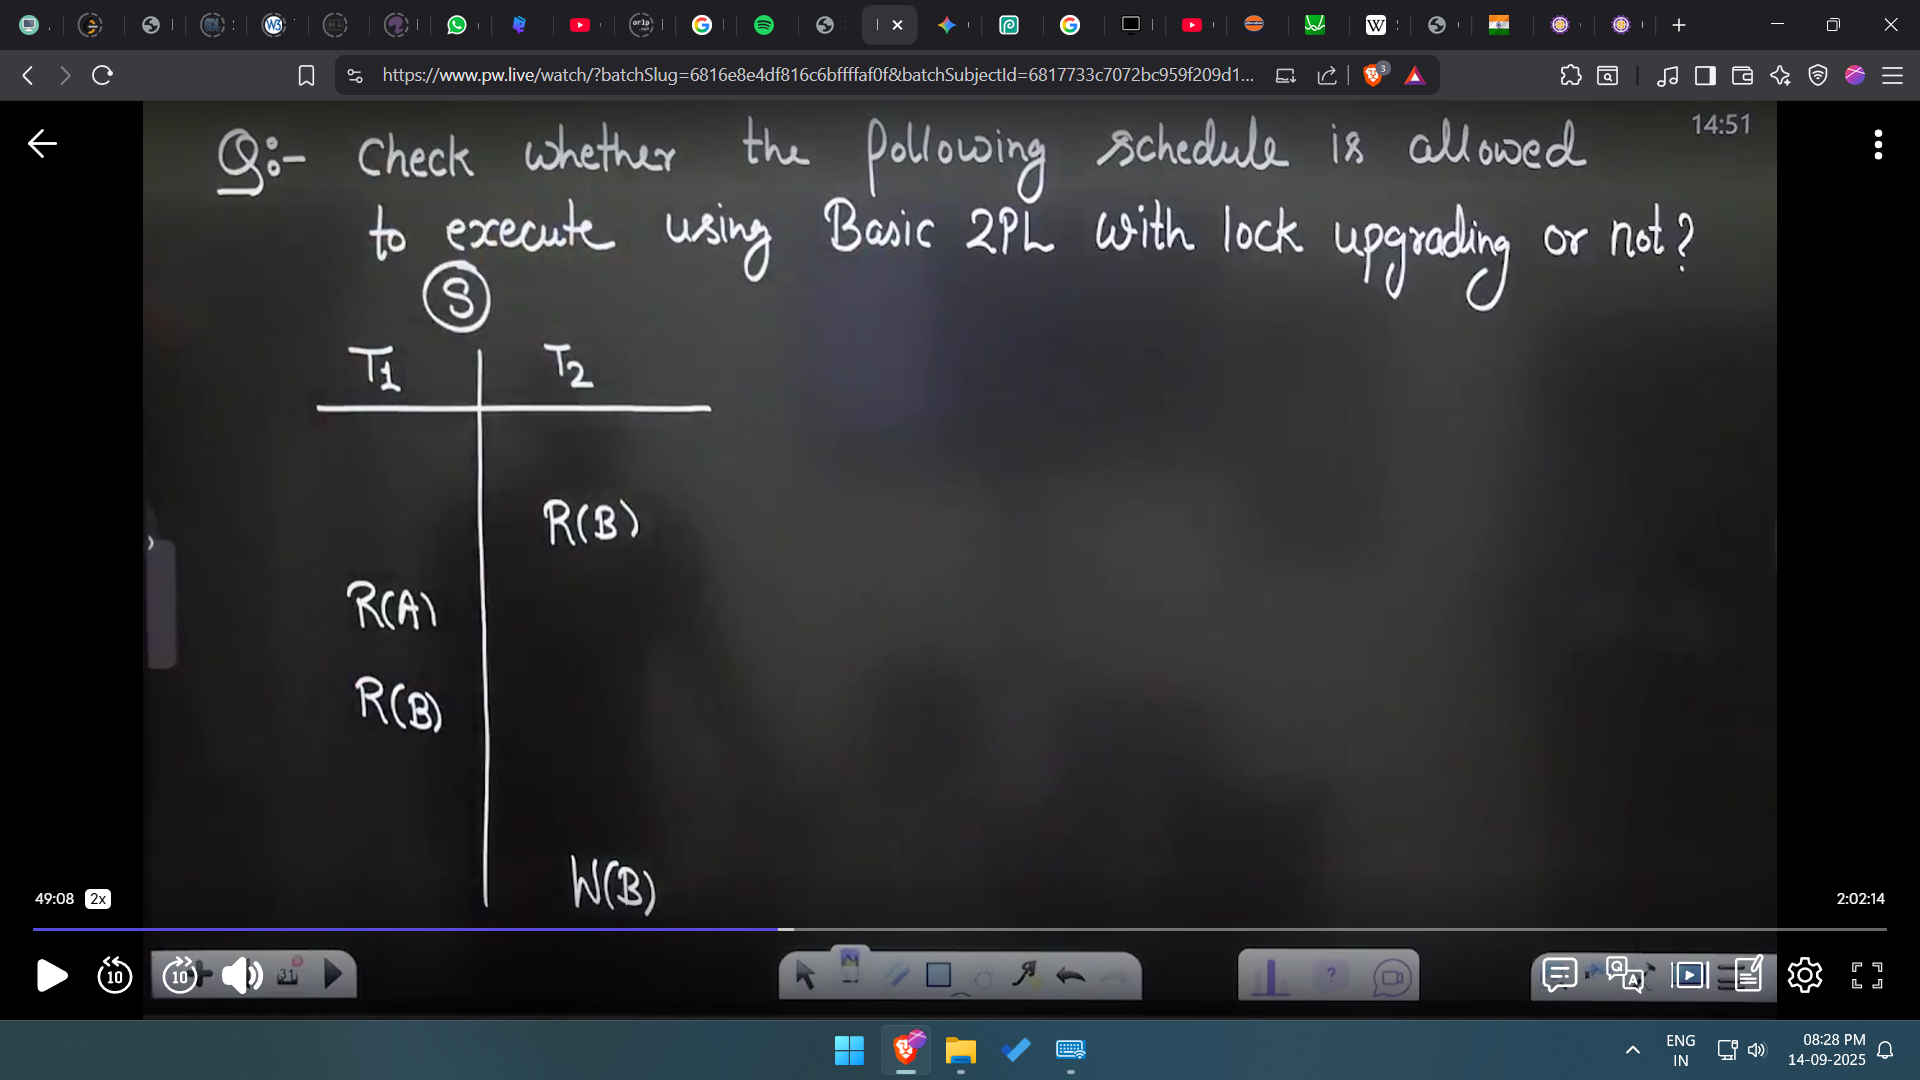 https://www.pw.live/watch/?batchSlug=6816e8e4df816c6bffffaf0f&batchSubjectId=6817733c7072bc959f209d1...
3
14:51
Q:- Check whether the following schedule is allowed
to execute using Basic 2PL with lock upgrading or not?
S
T1 T2
R(B)
R(A)
R(B)
W(B)
49:08 2x 2:02:14
10 10 31
ENG
IN
08:28 PM
14-09-2025